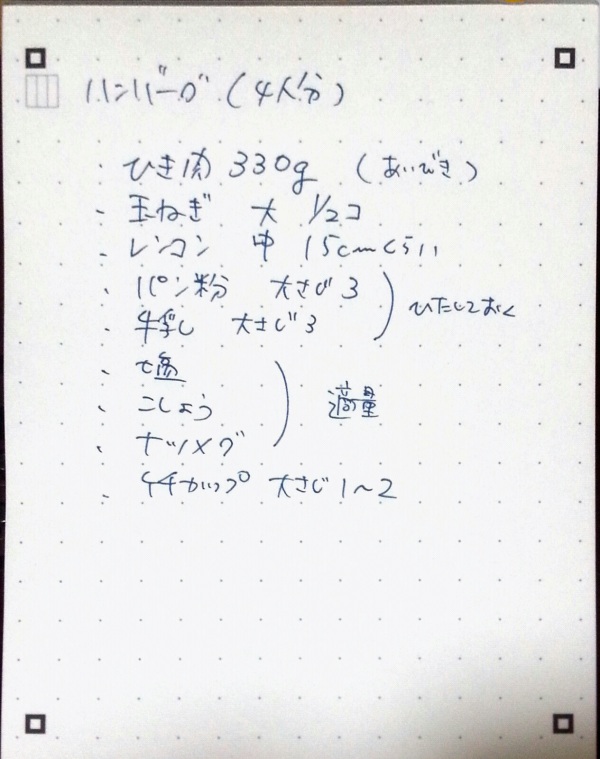 ハンバーグ(4人分)
・ひき肉 330g (あいびき)
・玉ねぎ 大 1/2コ
・レンコン 中 15cmくらい
・パン粉 大さじ3
・牛乳 大さじ3 ひたしておく
・塩
・こしょう 適量
・ナツメグ
・ケチャップ 大さじ1~2